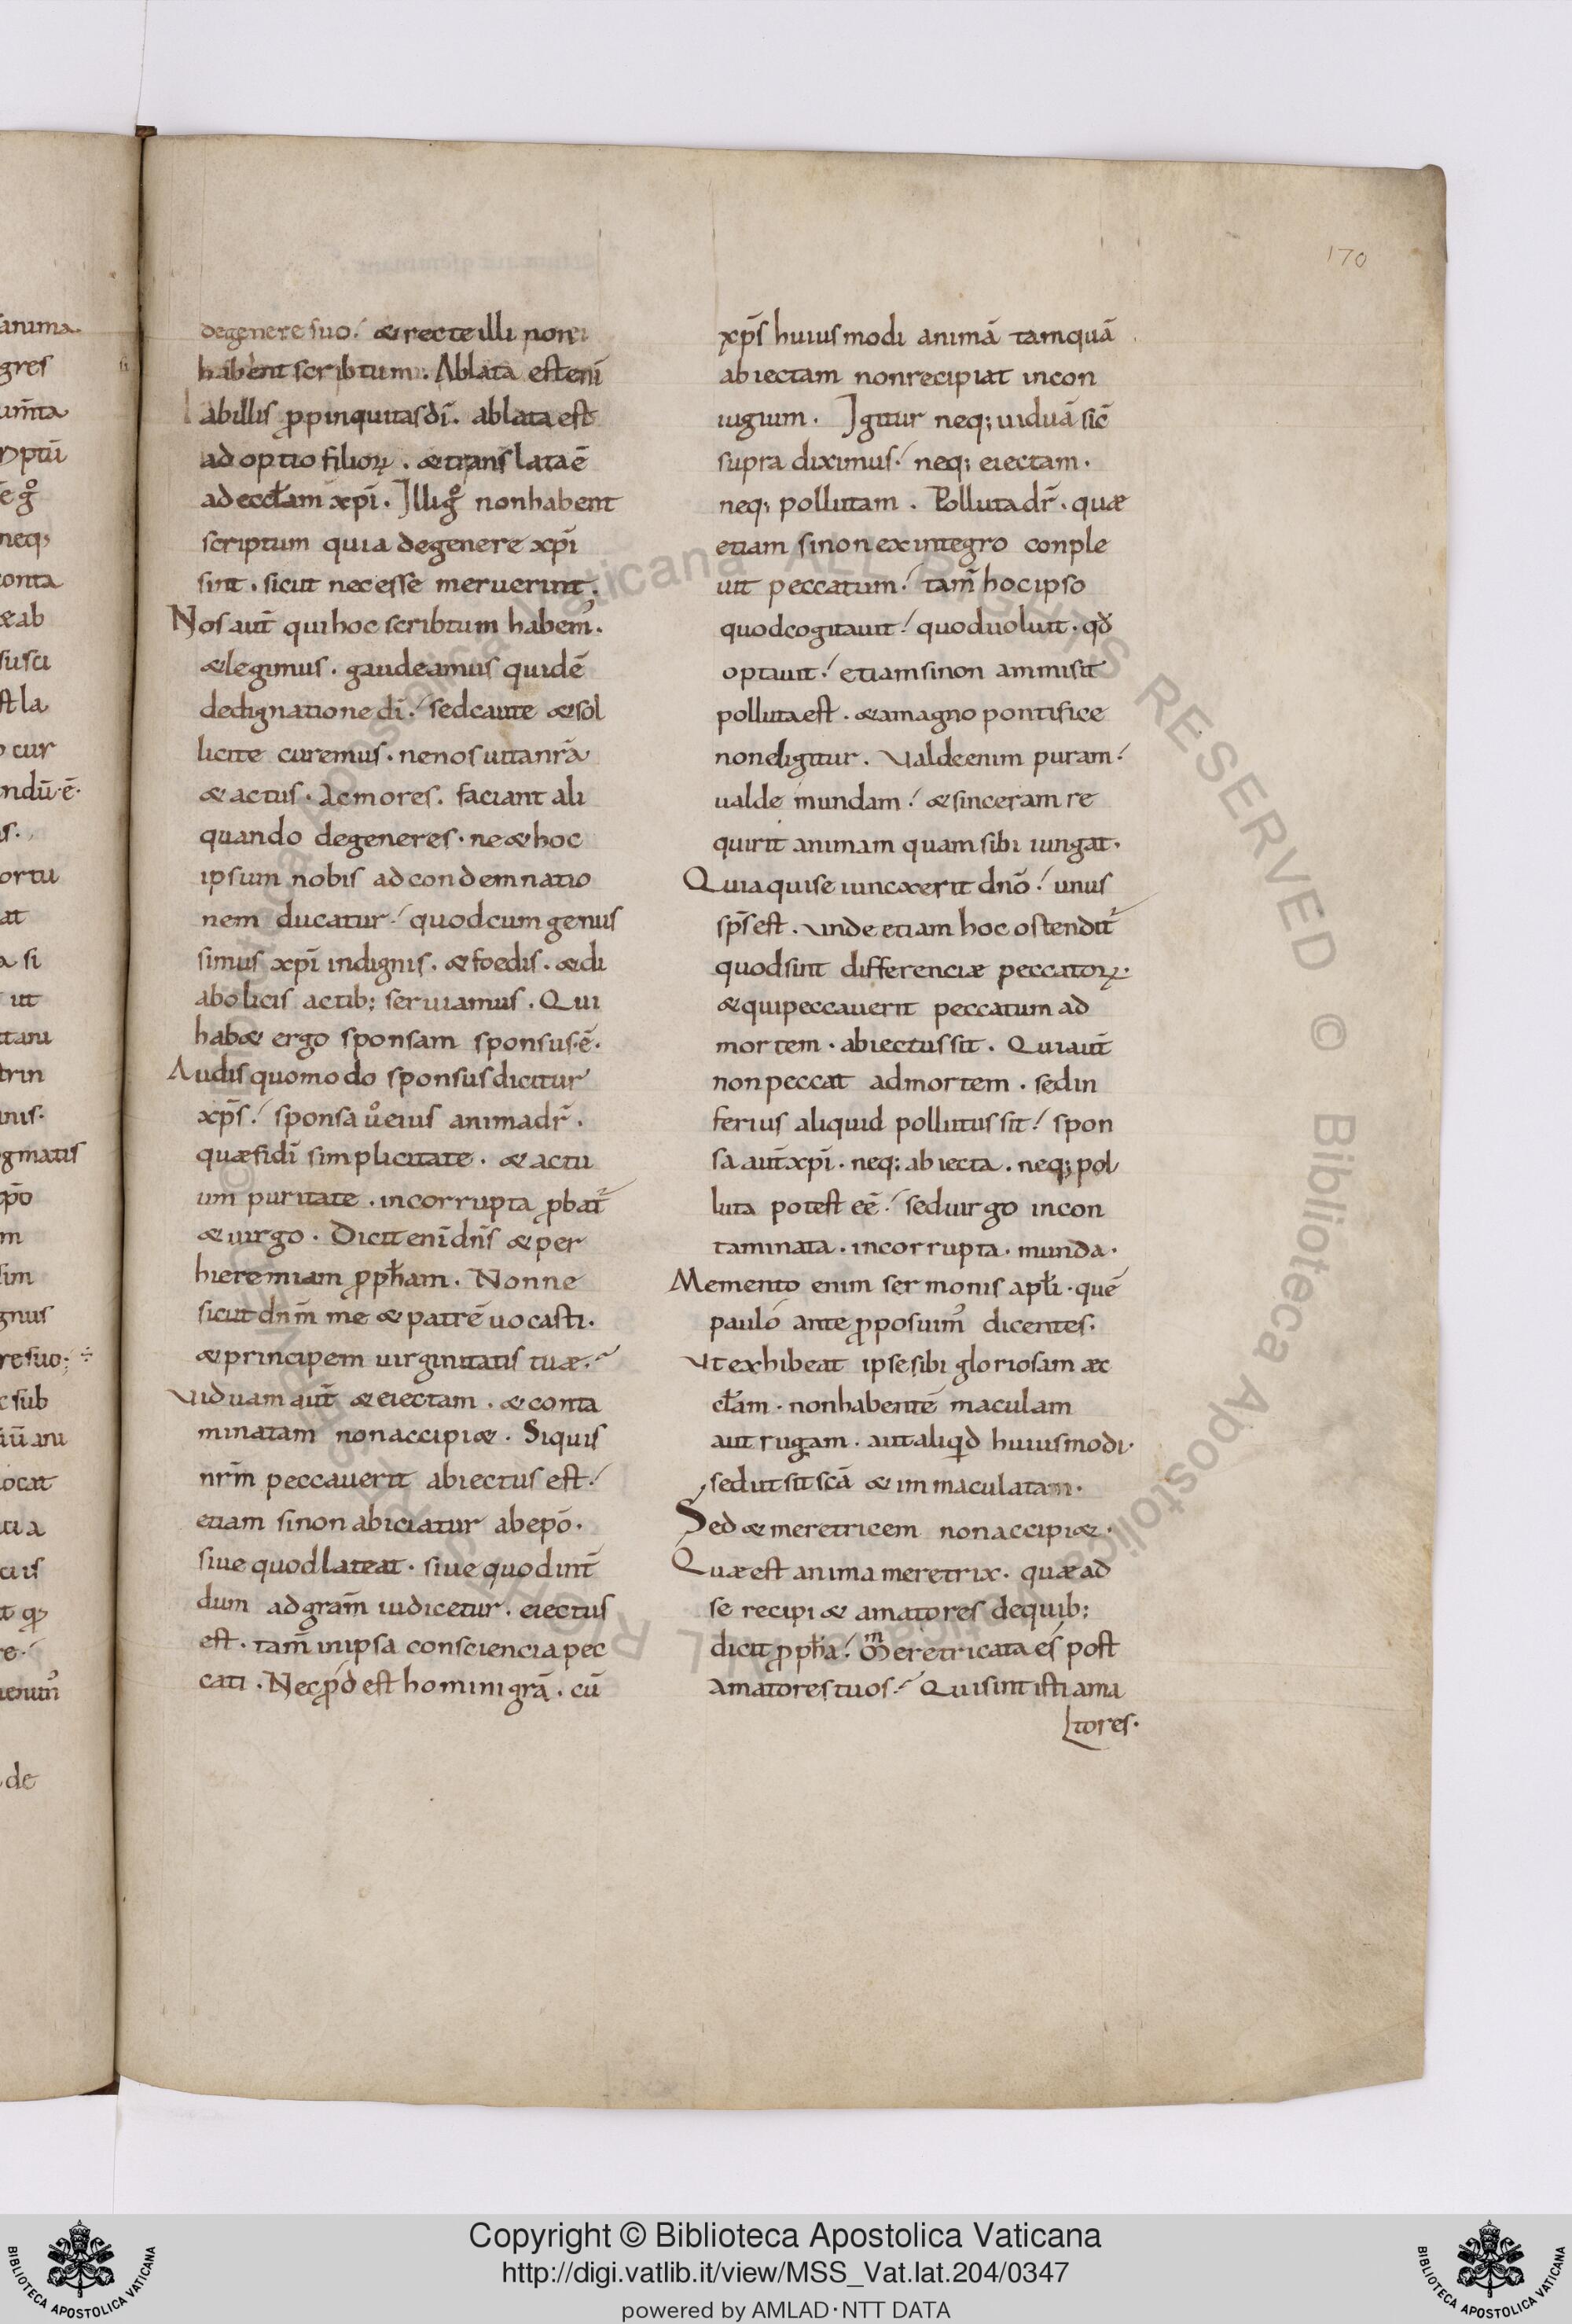 170
degenere suo. & recte illi non
habent scribtum. Ablata est eni̅
ab illis ꝓpinquitas dı̅. ablata est
adoptio filioꝝ. & translata e̅
ad eccl̅am xpı̅. Illi gͦ non habent
scriptum quia degenere xpı̅
sint. sicut nec esse meruerint.
Nos aut̅ qui hoc scribtum habem᾽.
& legimus. gaudeamus quide̅
dedignatione dı̅. sed caute & sol
licite curemus. ne nos uita nr̅a
& actus. ac mores. faciant ali
quando degeneres. ne & hoc
ipsum nobis ad condemnatio
nem ducatur. quod cum genus
simus xpı̅ indignis. & foedis. & di
abolicis actib; seruiamus. Qui
hab& ergo sponsam sponsus.e̅.
Audis quomodo sponsus dicitur
xp̅s. sponsa uͦ eius anima dr̅.
quæ fidı̅ simplicitate. & actu
um puritate. incorrupta ꝓbat᷑
& uirgo. Dicit eni̅ dn̅s & per
hieremiam ꝓph̅am. Nonne
sicut dn̅m me & patre̅ uocasti.
& principem uirginitatis tuæ.
Uiduam aut̅ & eiectam. & conta
minatam non accipi&. Siquis
nr̅m peccauerit abiectus est.
etiam si non abiciatur ab epo̅.
siue quod lateat. siue quod int̅
dum ad gram̅ iudicetur. eiectus
est. tam̅ in ipsa consciencia pec
cati. Nec ꝓdest homini gra̅. cu̅
xp̅s huiusmodi anima̅ tamqua̅
abiectam non recipiat in con
iugium. Igitur neq; uidua̅ sic̅
supra diximus. neq; eiectam.
neq; pollutam. Polluta dr̅. quæ
etiam si non ex integro conple
uit peccatum. tam̅ hoc ipso
quod cogitauit. quod uoluit. qđ
optauit. etiam si non ammisit
polluta est. & a magno pontifice
non eligitur. Ualde enim puram.
ualde mundam. & sinceram re
quirit animam quam sibi iungat.
Quia qui se iuncxerit dno̅. unus
sp̅s est. Unde etiam hoc ostendit᷑
quod sint differenciæ peccatoꝝ.
& qui peccauerit peccatum ad
mortem. abiectus sit. Qui aut̅
non peccat ad mortem. sed in
ferius aliquid pollutus sit. spon
sa aut̅ xpı̅. neq; abiecta. neq; pol
luta potest ee̅. sed uirgo incon
taminata. incorrupta. munda.
Memento enim sermonis apl̅i. que̅
paulo ante ꝓposuim᾽ dicentes.
Ut exhibeat ipse sibi gloriosam æc
cl̅am. non habente̅ maculam
aut rugam. aut aliqđ huiusmodi.
sed ut sit sca̅ & immaculatam.
Sed & meretricem non accipi&.
Quæ est anima meretrix. quæ ad
se recipi& amatores de quib;
dicit ꝓph̅a. Meretricata es post
amatores tuos. Qui sint isti ama
tores.
Copyright © Biblioteca Apostolica Vaticana
http://digi.vatlib.it/view/MSS_Vat.lat.204/0347
powered by AMLAD·NTT DATA